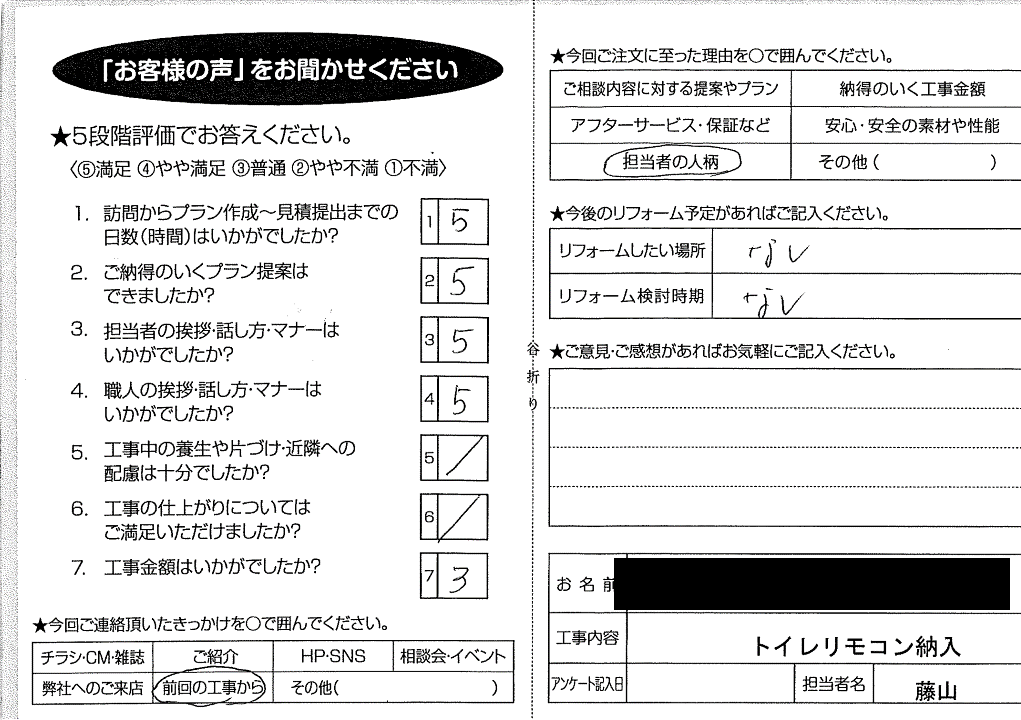 「お客様の声」をお聞かせください
★5段階評価でお答えください。
〈⑤満足 ④やや満足 ③普通 ②やや不満 ①不満〉
1. 訪問からプラン作成〜見積提出までの
日数(時間)はいかがでしたか?
1 5
2. ご納得のいくプラン提案は
できましたか?
2 5
3. 担当者の挨拶・話し方・マナーは
いかがでしたか?
3 5
4. 職人の挨拶・話し方・マナーは
いかがでしたか?
4 5
5. 工事中の養生や片づけ・近隣への
配慮は十分でしたか?
5 /
6. 工事の仕上がりについては
ご満足いただけましたか?
6 /
7. 工事金額はいかがでしたか?
7 3
★今回ご連絡頂いたきっかけを○で囲んでください。
チラシ・CM・雑誌 ご紹介 HP・SNS 相談会・イベント
弊社へのご来店 前回の工事から その他( )
谷折り
★今回ご注文に至った理由を○で囲んでください。
ご相談内容に対する提案やプラン 納得のいく工事金額
アフターサービス・保証など 安心・安全の素材や性能
担当者の人柄 その他( )
★今後のリフォーム予定があればご記入ください。
リフォームしたい場所 なし
リフォーム検討時期 なし
★ご意見・ご感想があればお気軽にご記入ください。
お名前
工事内容 トイレリモコン納入
アンケート記入日 担当者名 藤山